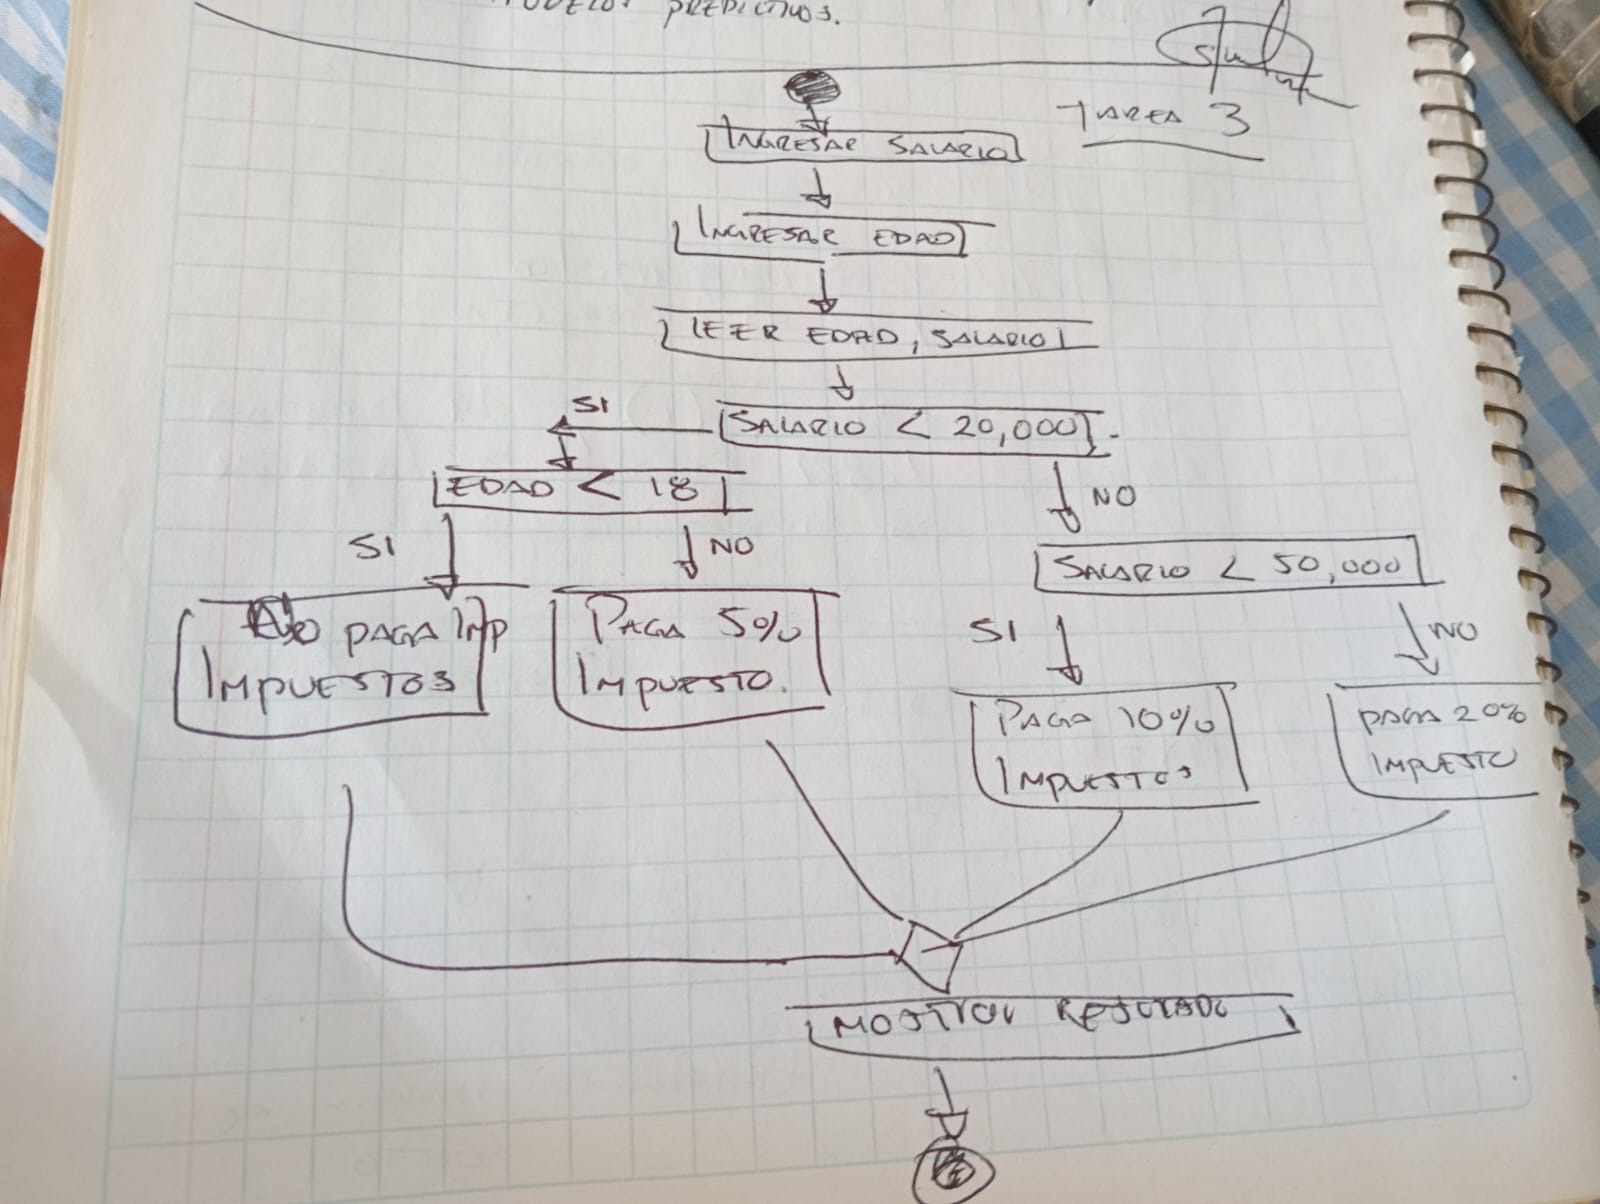 PREDICTIVOS.
TAREA 3
INGRESAR SALARIO
INGRESAR EDAD
LEER EDAD, SALARIO
SALARIO < 20,000
SI
EDAD < 18
NO
SI
NO
SALARIO < 50,000
No PAGA IMP
IMPUESTOS
PAGA 5%
IMPUESTO.
SI
NO
PAGA 10%
IMPUESTOS
PAGA 20%
IMPUESTO